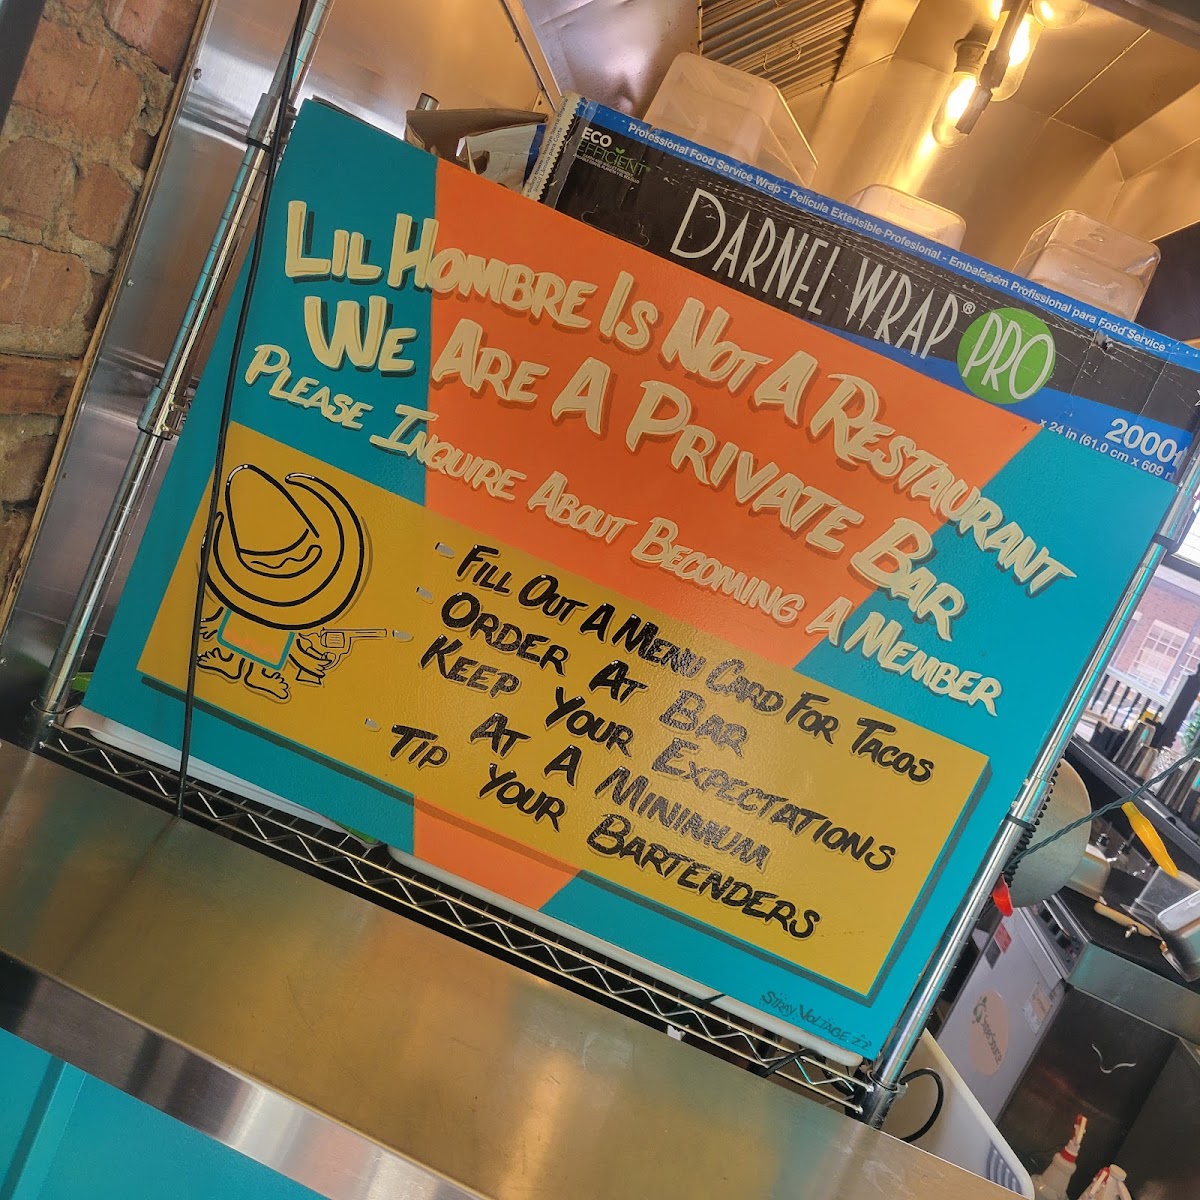 ECO
EFFICIENT
Professional Food Service Wrap - Película Extensible Profesional - Embalagem Profissional para Food Service
DARNEL WRAP® PRO
2000
x 24 in (61.0 cm x 609
LIL HOMBRE IS NOT A RESTAURANT
WE ARE A PRIVATE BAR
PLEASE INQUIRE ABOUT BECOMING A MEMBER
- FILL OUT A MENU CARD FOR TACOS
- ORDER AT BAR
- KEEP YOUR EXPECTATIONS
AT A MINIMUM
- TIP YOUR BARTENDERS
STRAY VOLTAGE 22